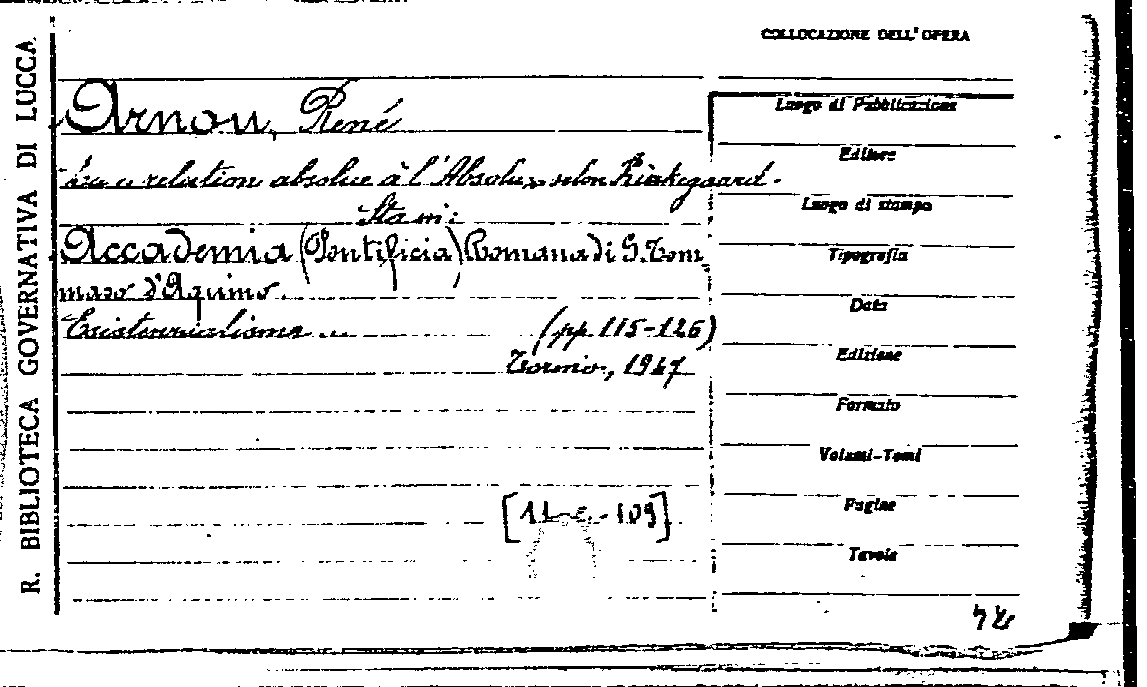 R. BIBLIOTECA GOVERNATIVA DI LUCCA
COLLOCAZIONE DELL'OPERA
Arnou, René
La « relation absolue à l'Absolu » selon Kierkegaard.
Sta in:
Accademia (Pontificia) Romana di S. Tom-
maso d'Aquino.
Esistenzialismo ...
(pp. 115-126)
Torino, 1947
[11-c.-109]
Luogo di Pubblicazione
Editore
Luogo di stampa
Tipografia
Data
Edizione
Formato
Volumi-Tomi
Pagine
Tavole